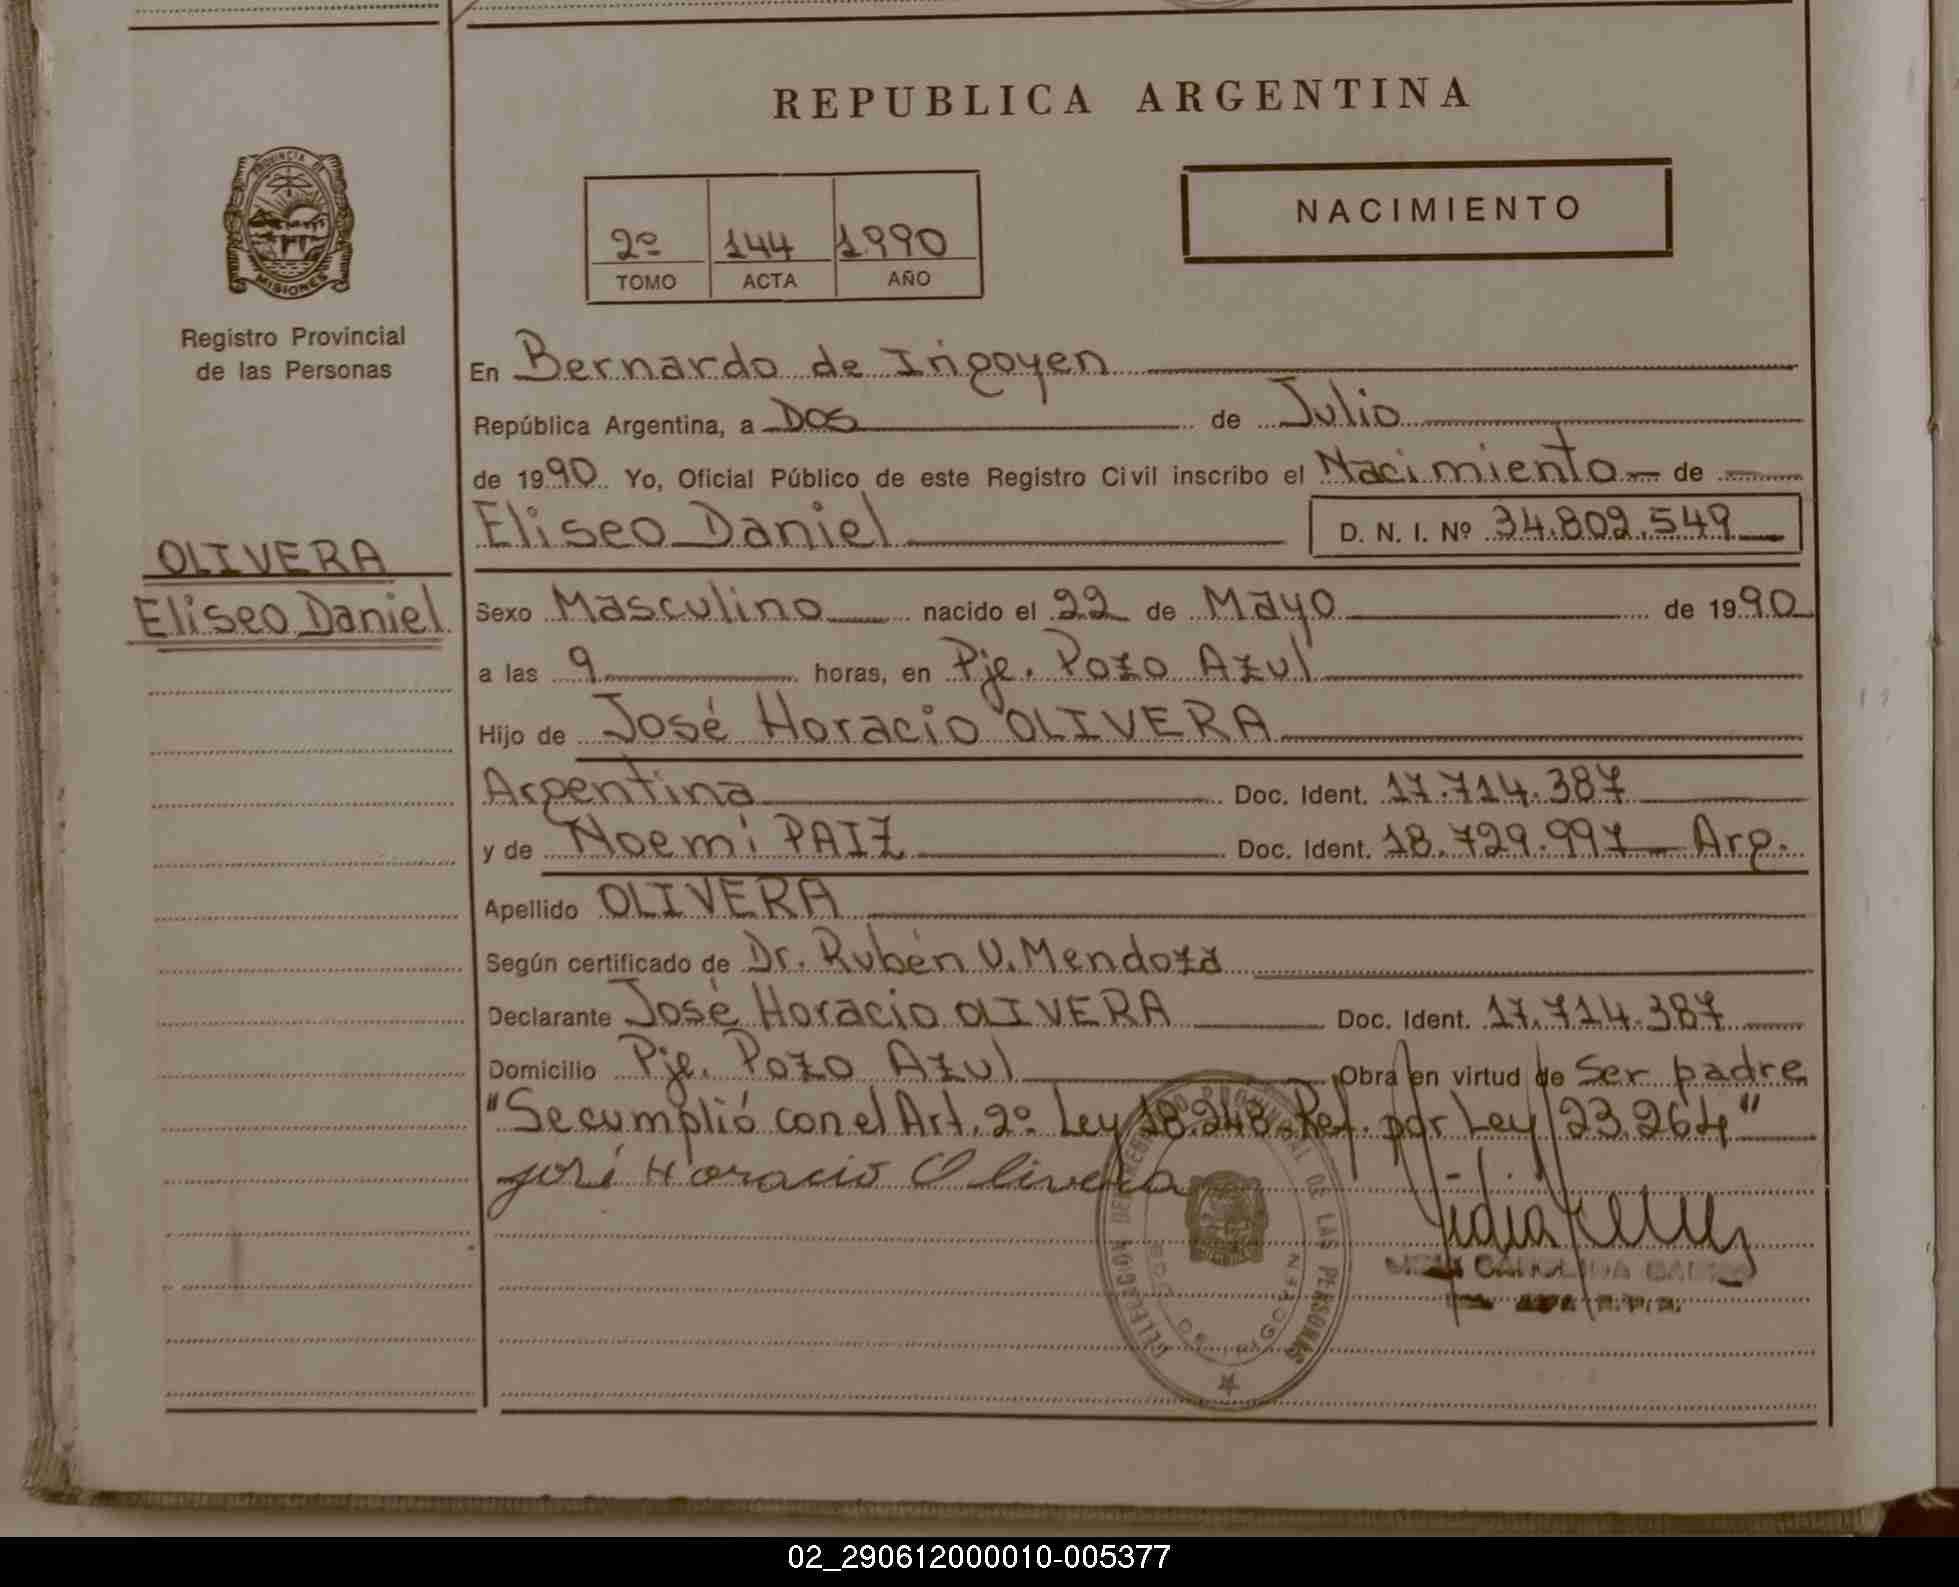 REPUBLICA ARGENTINA
PROVINCIA DE
MISIONES
Registro Provincial
de las Personas
2º 144 1990
TOMO ACTA AÑO
NACIMIENTO
En Bernardo de Irigoyen
República Argentina, a Dos de Julio
de 1990 Yo, Oficial Público de este Registro Civil inscribo el Nacimiento de
Eliseo Daniel D. N. I. Nº 34.802.549
OLIVERA
Eliseo Daniel
Sexo Masculino nacido el 22 de Mayo de 1990
a las 9 horas, en Pje. Pozo Azul
Hijo de José Horacio OLIVERA
Argentina Doc. Ident. 17.714.387
y de Noemí PAIZ Doc. Ident. 18.729.997 Arg.
Apellido OLIVERA
Según certificado de Dr. Rubén V. Mendoza
Declarante José Horacio OLIVERA Doc. Ident. 17.714.387
Domicilio Pje. Pozo Azul Obra en virtud de Ser padre
"Se cumplió con el Art. 2º Ley 18.248. Ref. por Ley 23.264"
José Horacio Olivera
PROVINCIAL DE LAS PERSONAS
BDO. DE IRIGOYEN
02_290612000010-005377